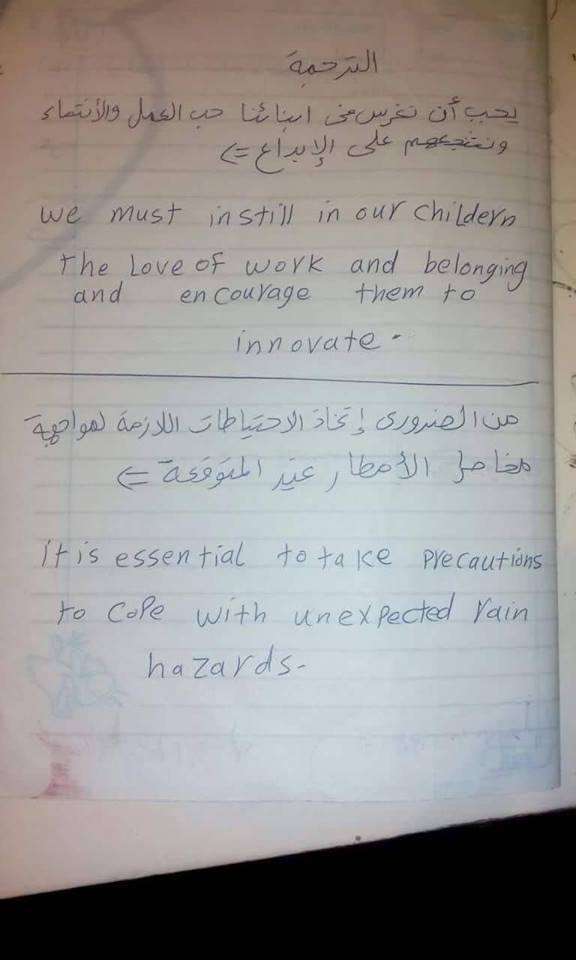 الترجمة
يجب أن نغرس فى ابنائنا حب العمل والأنتماء
ونشجعهم على الإبداع <=
we must instill in our childern
the love of work and belonging
and encourage them to
innovate.
من الضرورى إتخاذ الاحتياطات اللازمة لمواجهة
مخاطر الأمطار غير المتوقعة <=
it is essential to take precautions
to cope with unexpected rain
hazards.